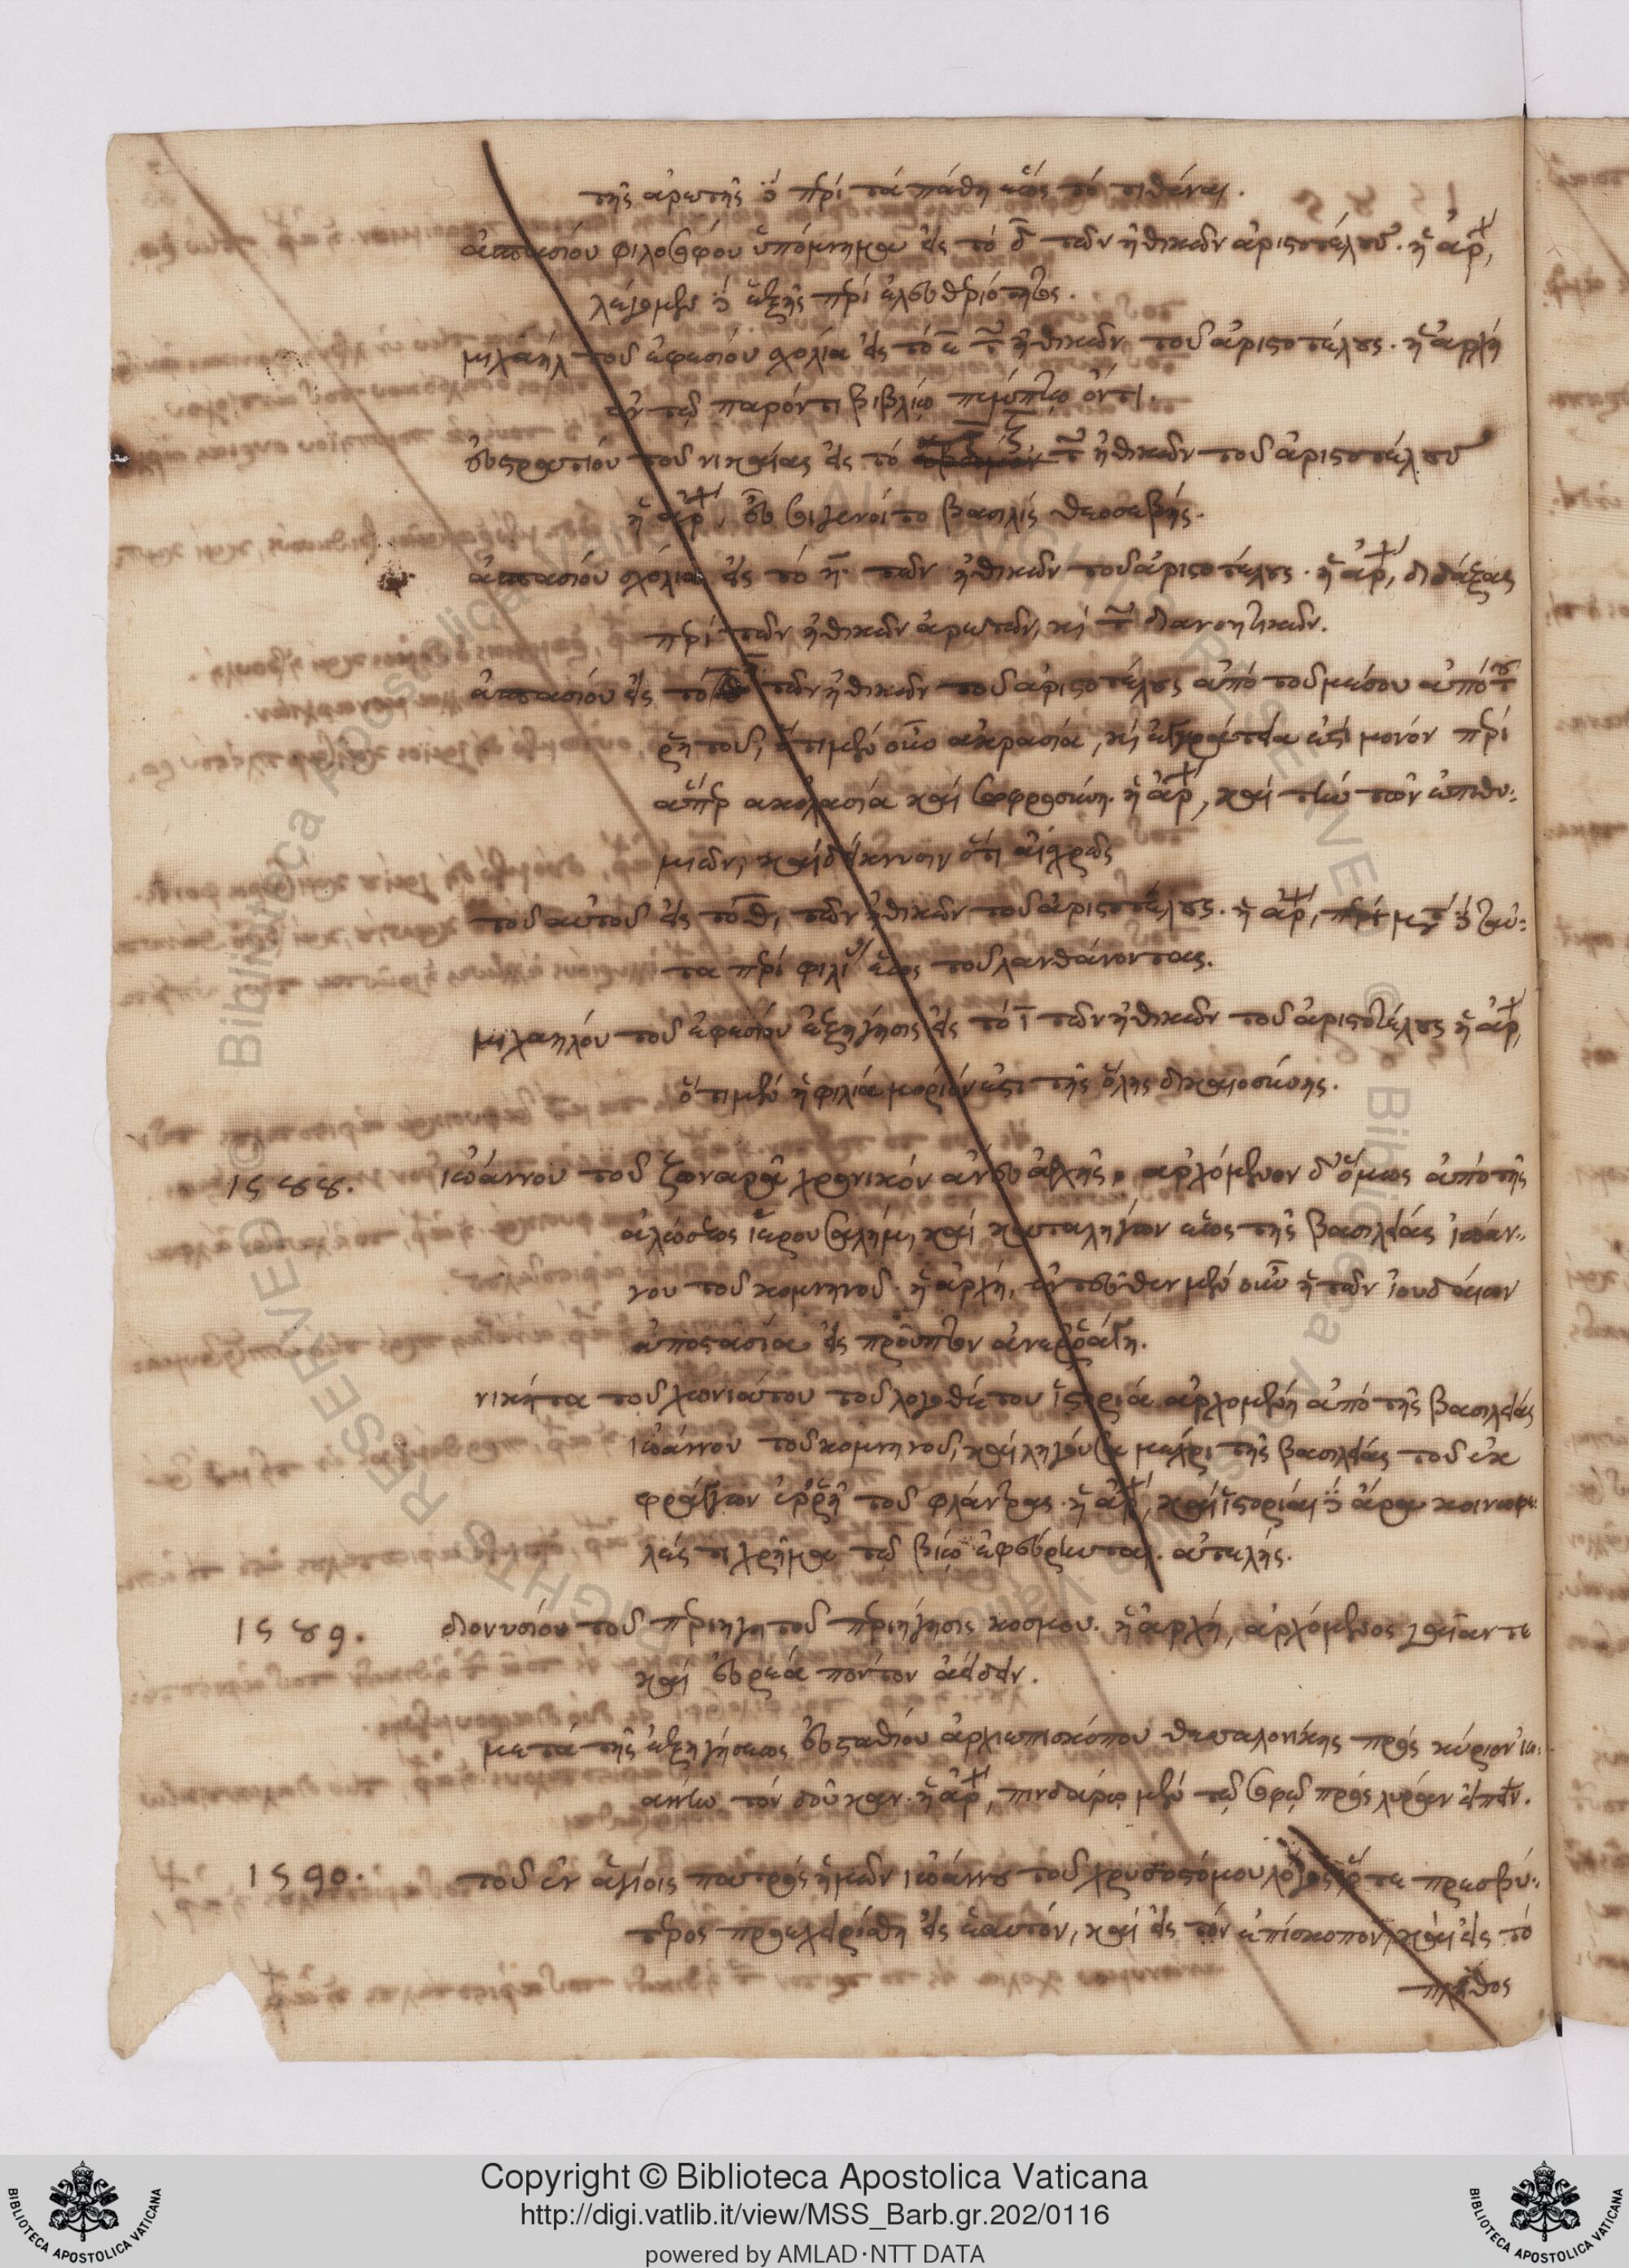 τῆς ἀρετῆς δὲ περὶ τὰ πάθη ἕως τὸ τιθέναι.
ἀσπασίου φιλοσόφου ὑπόμνημα εἰς τὸ δ̄ τῶν ἠθικῶν ἀριστοτέλους. ἡ ἀρχ,
λέγομεν δὲ ἑξῆς περὶ ἐλευθεριότητος.
μιχαὴλ τοῦ ἐφεσίου σχόλια εἰς τὸ ε̄ τῶν ἠθικῶν τοῦ ἀριστοτέλους. ἡ ἀρχή
ἐν τῷ παρόντι βιβλίῳ πέμπτῳ ὄντι.
εὐστρατίου τοῦ νικαίας εἰς τὸ ζ τῶν ἠθικῶν τοῦ ἀριστοτέλους
ἡ ἀρχ, βασιλὶς θεοσεβής.
ἀσπασίου σχόλια εἰς τὸ η̄ τῶν ἠθικῶν τοῦ ἀριστοτέλους. ἡ ἀρχ, διδάξας
περὶ τῶν ἠθικῶν ἀρετῶν, καὶ τῶν διανοητικῶν.
ἀσπασίου εἰς τὸ τῶν ἠθικῶν τοῦ ἀριστοτέλους ἀπὸ τοῦ μέσου ἀπὸ τοῦ
ῥητοῦ, ὅτι μὲν οὖν ἀκρασία, καὶ ἐγκράτεια ἐστὶ μόνον περὶ
ἅπερ ἀκολασία καὶ σωφροσύνη. ἡ ἀρχ, καὶ τὴν τῶν ἐπιθυ:
μιῶν, καὶ δείκνυσιν ὅτι αἰσχρῶς
τοῦ αὐτοῦ εἰς τὸ θ, τῶν ἠθικῶν τοῦ ἀριστοτέλους. ἡ ἀρχ, μετὰ δὲ ταῦ:
τα περὶ φιλίας ἕως τοῦ λανθάνοντας.
μιχαήλου τοῦ ἐφεσίου ἐξήγησις εἰς τὸ ῑ τῶν ἠθικῶν τοῦ ἀριστοτέλους ἡ ἀρχ,
ὅτι μὲν ἡ φιλία μόριόν ἐστι τῆς ὅλης δικαιοσύνης.
1588. ἰωάννου τοῦ ζωναρᾶ χρονικὸν ἄνευ ἀρχῆς, ἀρχόμενον δ' ὅμως ἀπὸ τῆς
ἁλώσεως ἱερουσαλήμ, καὶ καταλῆγον ἕως τῆς βασιλείας ἰωάν:
νου τοῦ κομνηνοῦ. ἡ ἀρχή, ἐντεῦθεν μὲν οὖν ἡ τῶν ἰουδαίων
ἀποστασία εἰς προὖπτον ἀνερράγη.
νικήτα τοῦ χωνιάτου τοῦ λογοθέτου ἱστορία ἀρχομένη ἀπὸ τῆς βασιλείας
ἰωάννου τοῦ κομνηνοῦ, καὶ λήγουσα μέχρι τῆς βασιλείας τοῦ ἐκ
φράγγων ἐρρῆ τοῦ φλάντρας. ἡ ἀρχ, καὶ ἱστορίαι δὲ ἄρα κοινωφε:
λές τι χρῆμα τῷ βίῳ ἐφεύρηνται. ἀτελής.
1589. διονυσίου τοῦ περιηγητοῦ περιήγησις κόσμου. ἡ ἀρχή, ἀρχόμενος γαῖαν τε
καὶ εὐρέα πόντον ἀείδειν.
μετὰ τῆς ἐξηγήσεως εὐσταθίου ἀρχιεπισκόπου θεσσαλονίκης πρὸς κύριον ἰω:
άννην τὸν δοῦκαν. ἡ ἀρχ, πινδάρῳ μὲν τῷ σοφῷ πρὸς λύραν εἰπεῖν.
1590. τοῦ ἐν ἁγίοις πατρὸς ἡμῶν ἰωάννου τοῦ χρυσοστόμου λόγος ὅτε πρεσβύ:
τερος προεχειρίσθη εἰς ἑαυτόν, καὶ εἰς τὸν ἐπίσκοπον, καὶ εἰς τὸ
πλῆθος
Copyright © Biblioteca Apostolica Vaticana
http://digi.vatlib.it/view/MSS_Barb.gr.202/0116
powered by AMLAD·NTT DATA